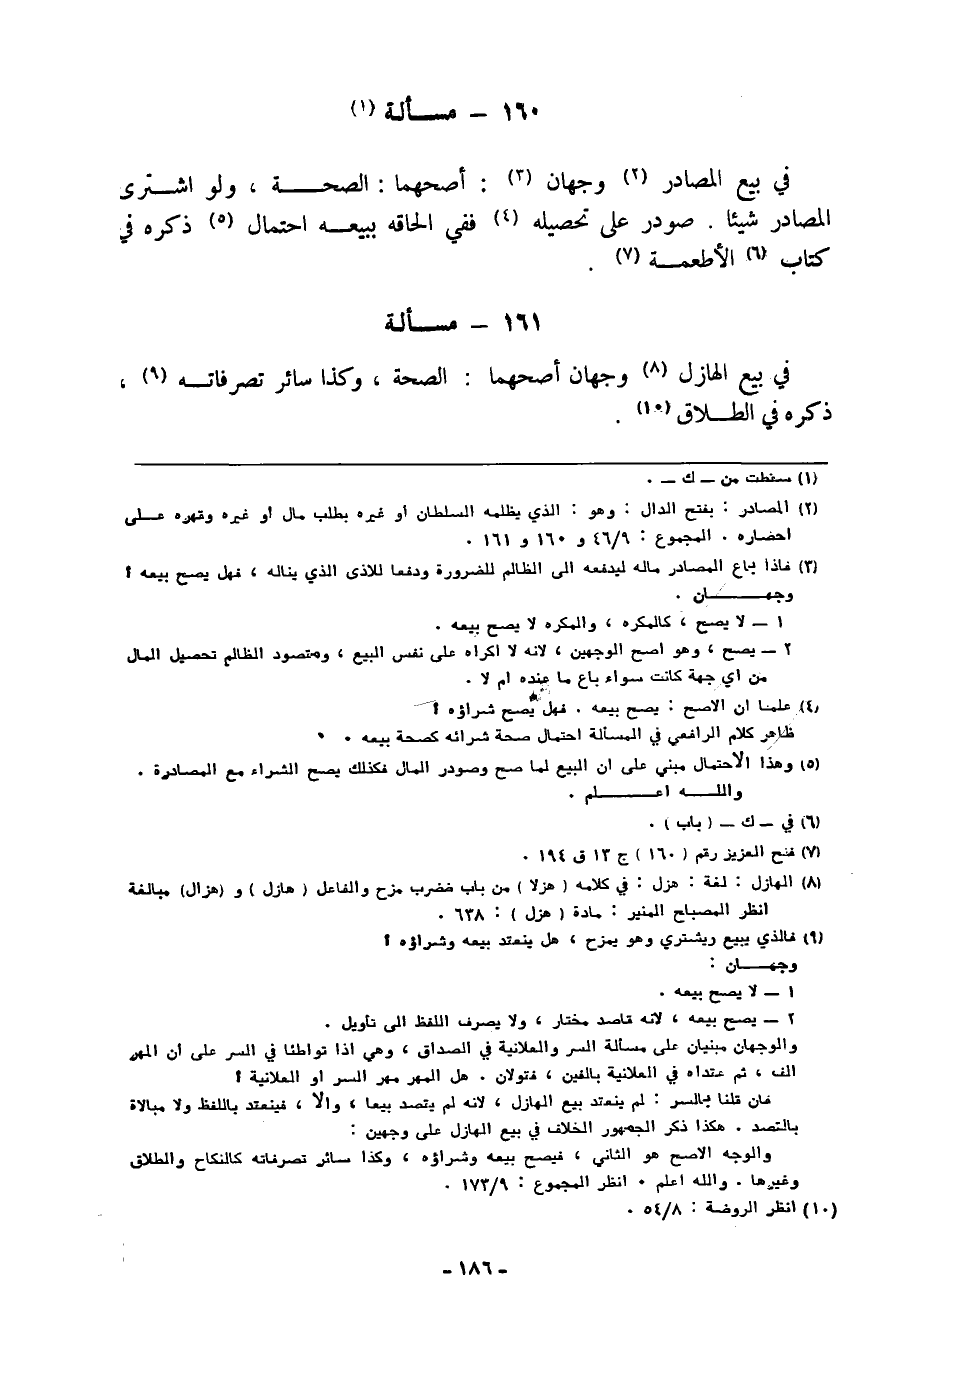 ١٦٠ – مســألة (١)
في بيع المصادر (٢) وجهان (٣) : أصحهما : الصحــــة ، ولو اشــترى
المصادر شيئا . صودر على تحصيله (٤) ففي الحاقه ببيعـــه احتمال (٥) ذكره في
كتاب (٦) الأطعمــة (٧) .
١٦١ – مســألة
في بيع الهازل (٨) وجهان أصحهما : الصحة ، وكذا سائر تصرفاتــه (٩) ،
ذكره في الطــلاق (١٠) .
(١) سقطت من – ك – .
(٢) المصادر : بفتح الدال : وهو : الذي يظلمه السلطان أو غيره بطلب مال أو غيره وقهره علــى
احضاره . المجموع : ٤٦/٩ و ١٦٠ و ١٦١ .
(٣) فاذا باع المصادر ماله ليدفعه الى الظالم للضرورة ودفعا للاذى الذي يناله ، فهل يصح بيعه ؟
وجهـــــــان .
١ – لا يصح ، كالمكره ، والمكره لا يصح بيعه .
٢ – يصح ، وهو اصح الوجهين ، لانه لا اكراه على نفس البيع ، ومقصود الظالم تحصيل المال
من اي جهة كانت سواء باع ما عنده ام لا .
(٤) علمنا ان الاصح : يصح بيعه . فهل يصح شراؤه ؟
ظاهر كلام الرافعي في المسألة احتمال صحة شرائه كصحة بيعه .
(٥) وهذا الاحتمال مبني على ان البيع لما صح وصودر المال فكذلك يصح الشراء مع المصادرة .
واللـــــه اعـــــــلم .
(٦) في – ك – ( باب ) .
(٧) فتح العزيز رقم ( ١٦٠ ) ج ١٣ ق ١٩٤ .
(٨) الهازل : لغة : هزل : في كلامه ( هزلا ) من باب ضرب مزح والفاعل ( هازل ) و (هزال) مبالغة
انظر المصباح المنير : مادة ( هزل ) : ٦٣٨ .
(٩) فالذي يبيع ويشتري وهو يمزح ، هل ينعقد بيعه وشراؤه ؟
وجهــــان :
١ – لا يصح بيعه .
٢ – يصح بيعه ، لانه قاصد مختار ، ولا يصرف اللفظ الى تأويل .
والوجهان مبنيان على مسألة السر والعلانية في الصداق ، وهي اذا تواطئا في السر على أن المهر
الف ، ثم عقداه في العلانية بالفين ، فقولان . هل المهر مهر السر او العلانية ؟
فان قلنا بالسر : لم ينعقد بيع الهازل ، لانه لم يقصد بيعا ، والا ، فينعقد باللفظ ولا مبالاة
بالقصد . هكذا ذكر الجمهور الخلاف في بيع الهازل على وجهين :
والوجه الاصح هو الثاني ، فيصح بيعه وشراؤه ، وكذا سائر تصرفاته كالنكاح والطلاق
وغيرها . والله اعلم . انظر المجموع : ١٧٣/٩ .
(١٠) انظر الروضة : ٥٤/٨ .
– ١٨٦ –